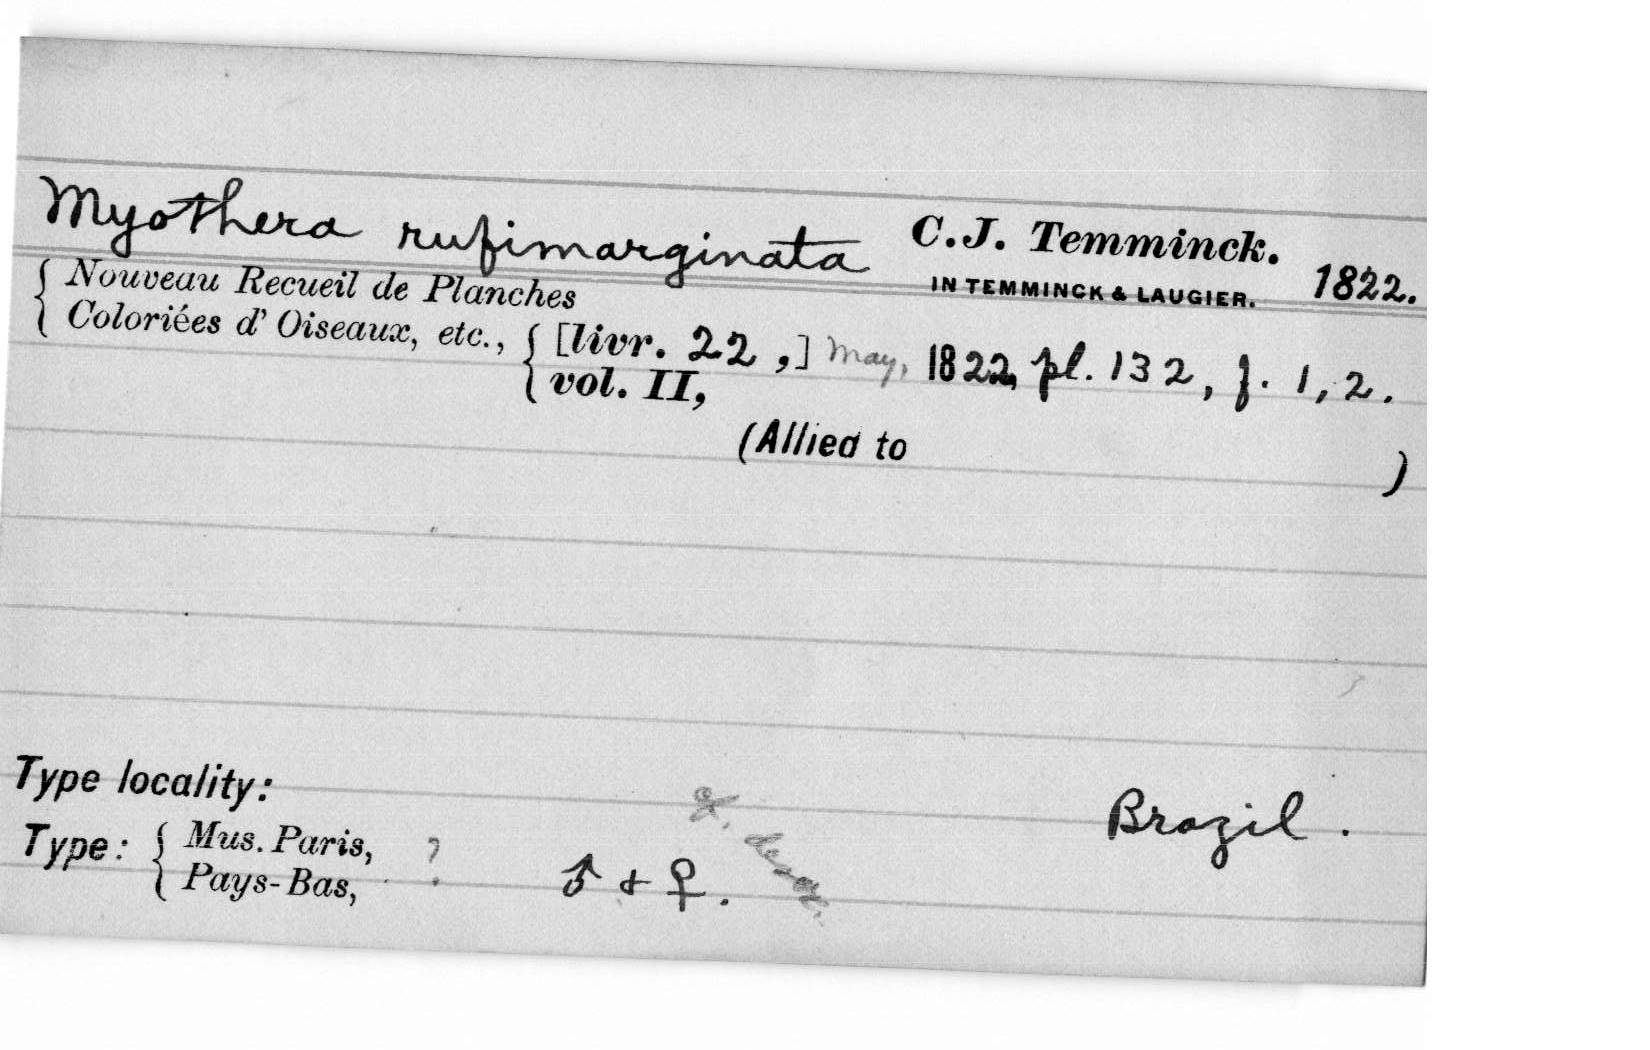 Myothera rufimarginata C.J. Temminck.
IN TEMMINCK & LAUGIER. 1822.
{ Nouveau Recueil de Planches
Coloriées d' Oiseaux, etc., { [livr. 22,] May, 1822, pl. 132, f. 1, 2.
vol. II,
(Allied to )
Type locality: Brazil.
Type: { Mus. Paris, ?
Pays-Bas, ♂ & ♀.